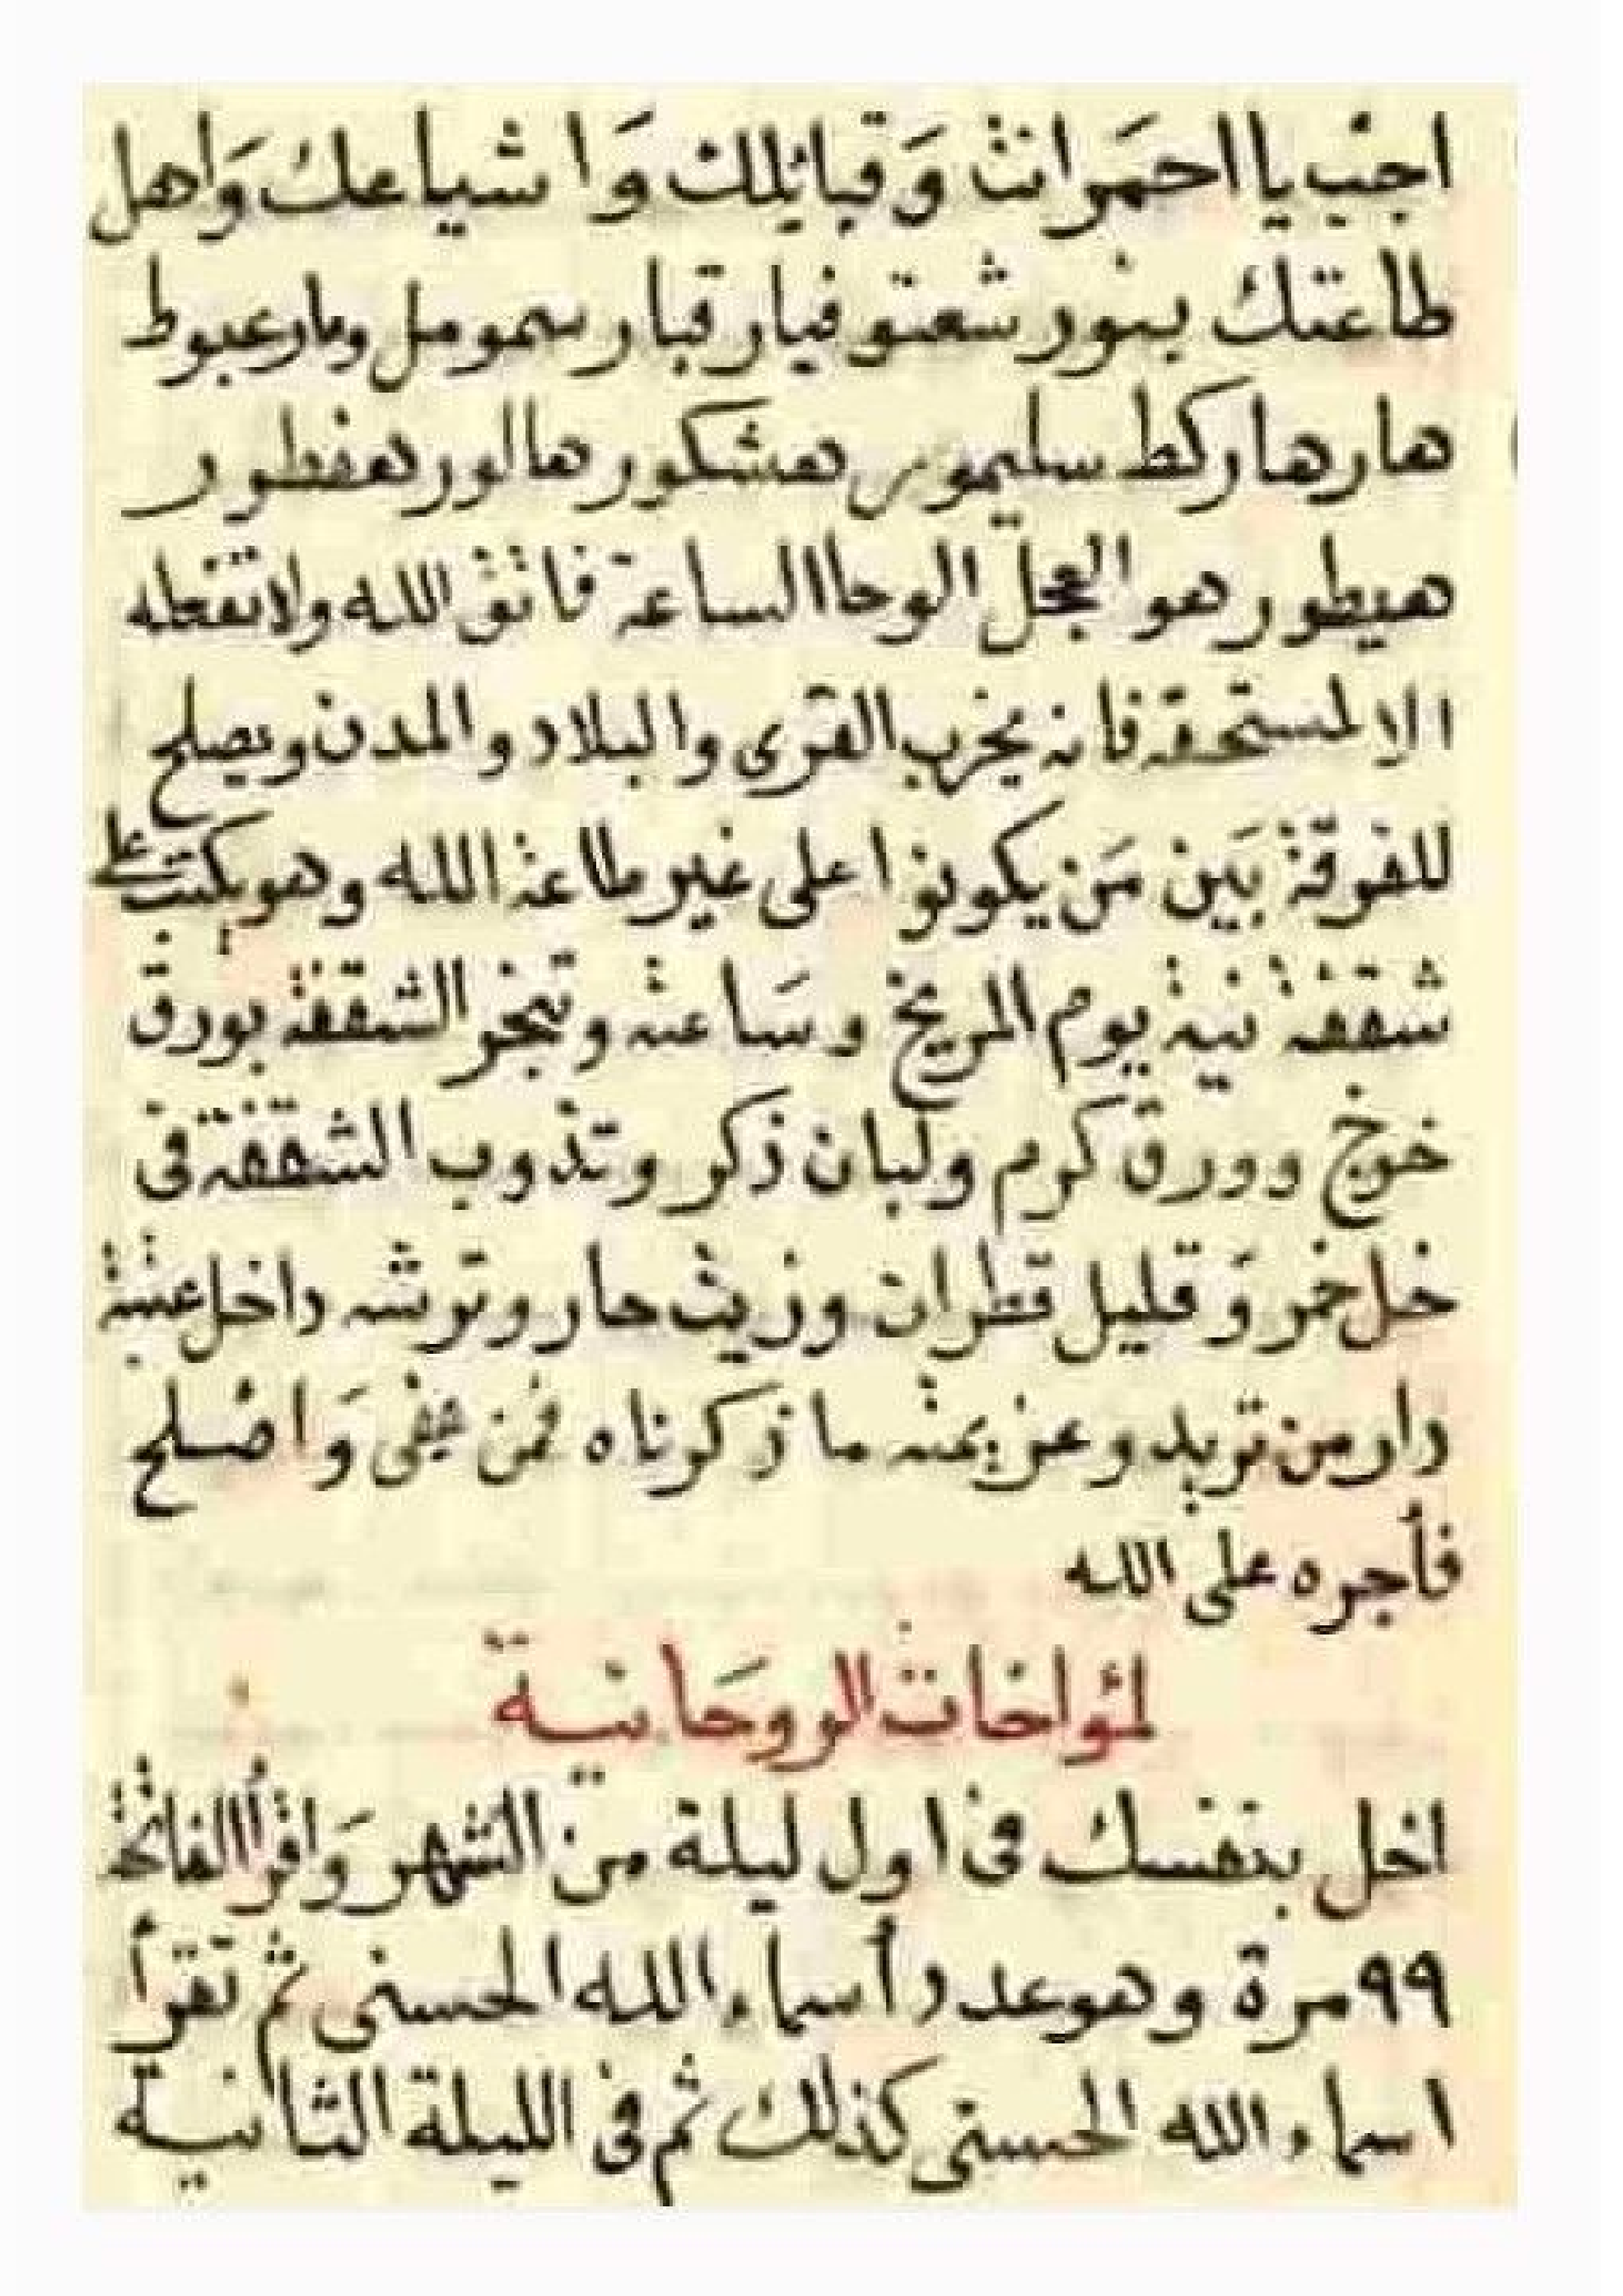 اجب يا احمر انت وَقبائلك وَاشياعك وَاهل
طاعتك بنور شعتو فيار قبار سمومل ومارعبوط
هارهاركط سليمون هشكور هالور هفطور
هيطور هو العجل الوحا الساعة فاتق الله ولا تفعله
الا لمستحقه فانه يخرب القرى والبلاد والمدن ويصلح
للفرقة بَين مَن يكونوا على غير طاعة الله وهو يكتب على
شقفة نية يوم المريخ وسَاعته وتبخر الشقفة بورق
خوخ وورق كرم ولبان ذكر وتذوب الشقفة فى
خل خمر وَقليل قطران وزيت حار وترشه داخل عتبة
دار من تريد وعزيمته ما ذكرناه فمن عفى وَاصلح
فأجره على الله
لمؤاخات الروحَانية
اخل بنفسك فى اول ليلة من الشهر وَاقرأ الفاتحة
٩٩ مرة وهو عدد أسماء الله الحسنى ثم تقرأ
اسماء الله الحسنى كذلك ثم فى الليلة الثانية